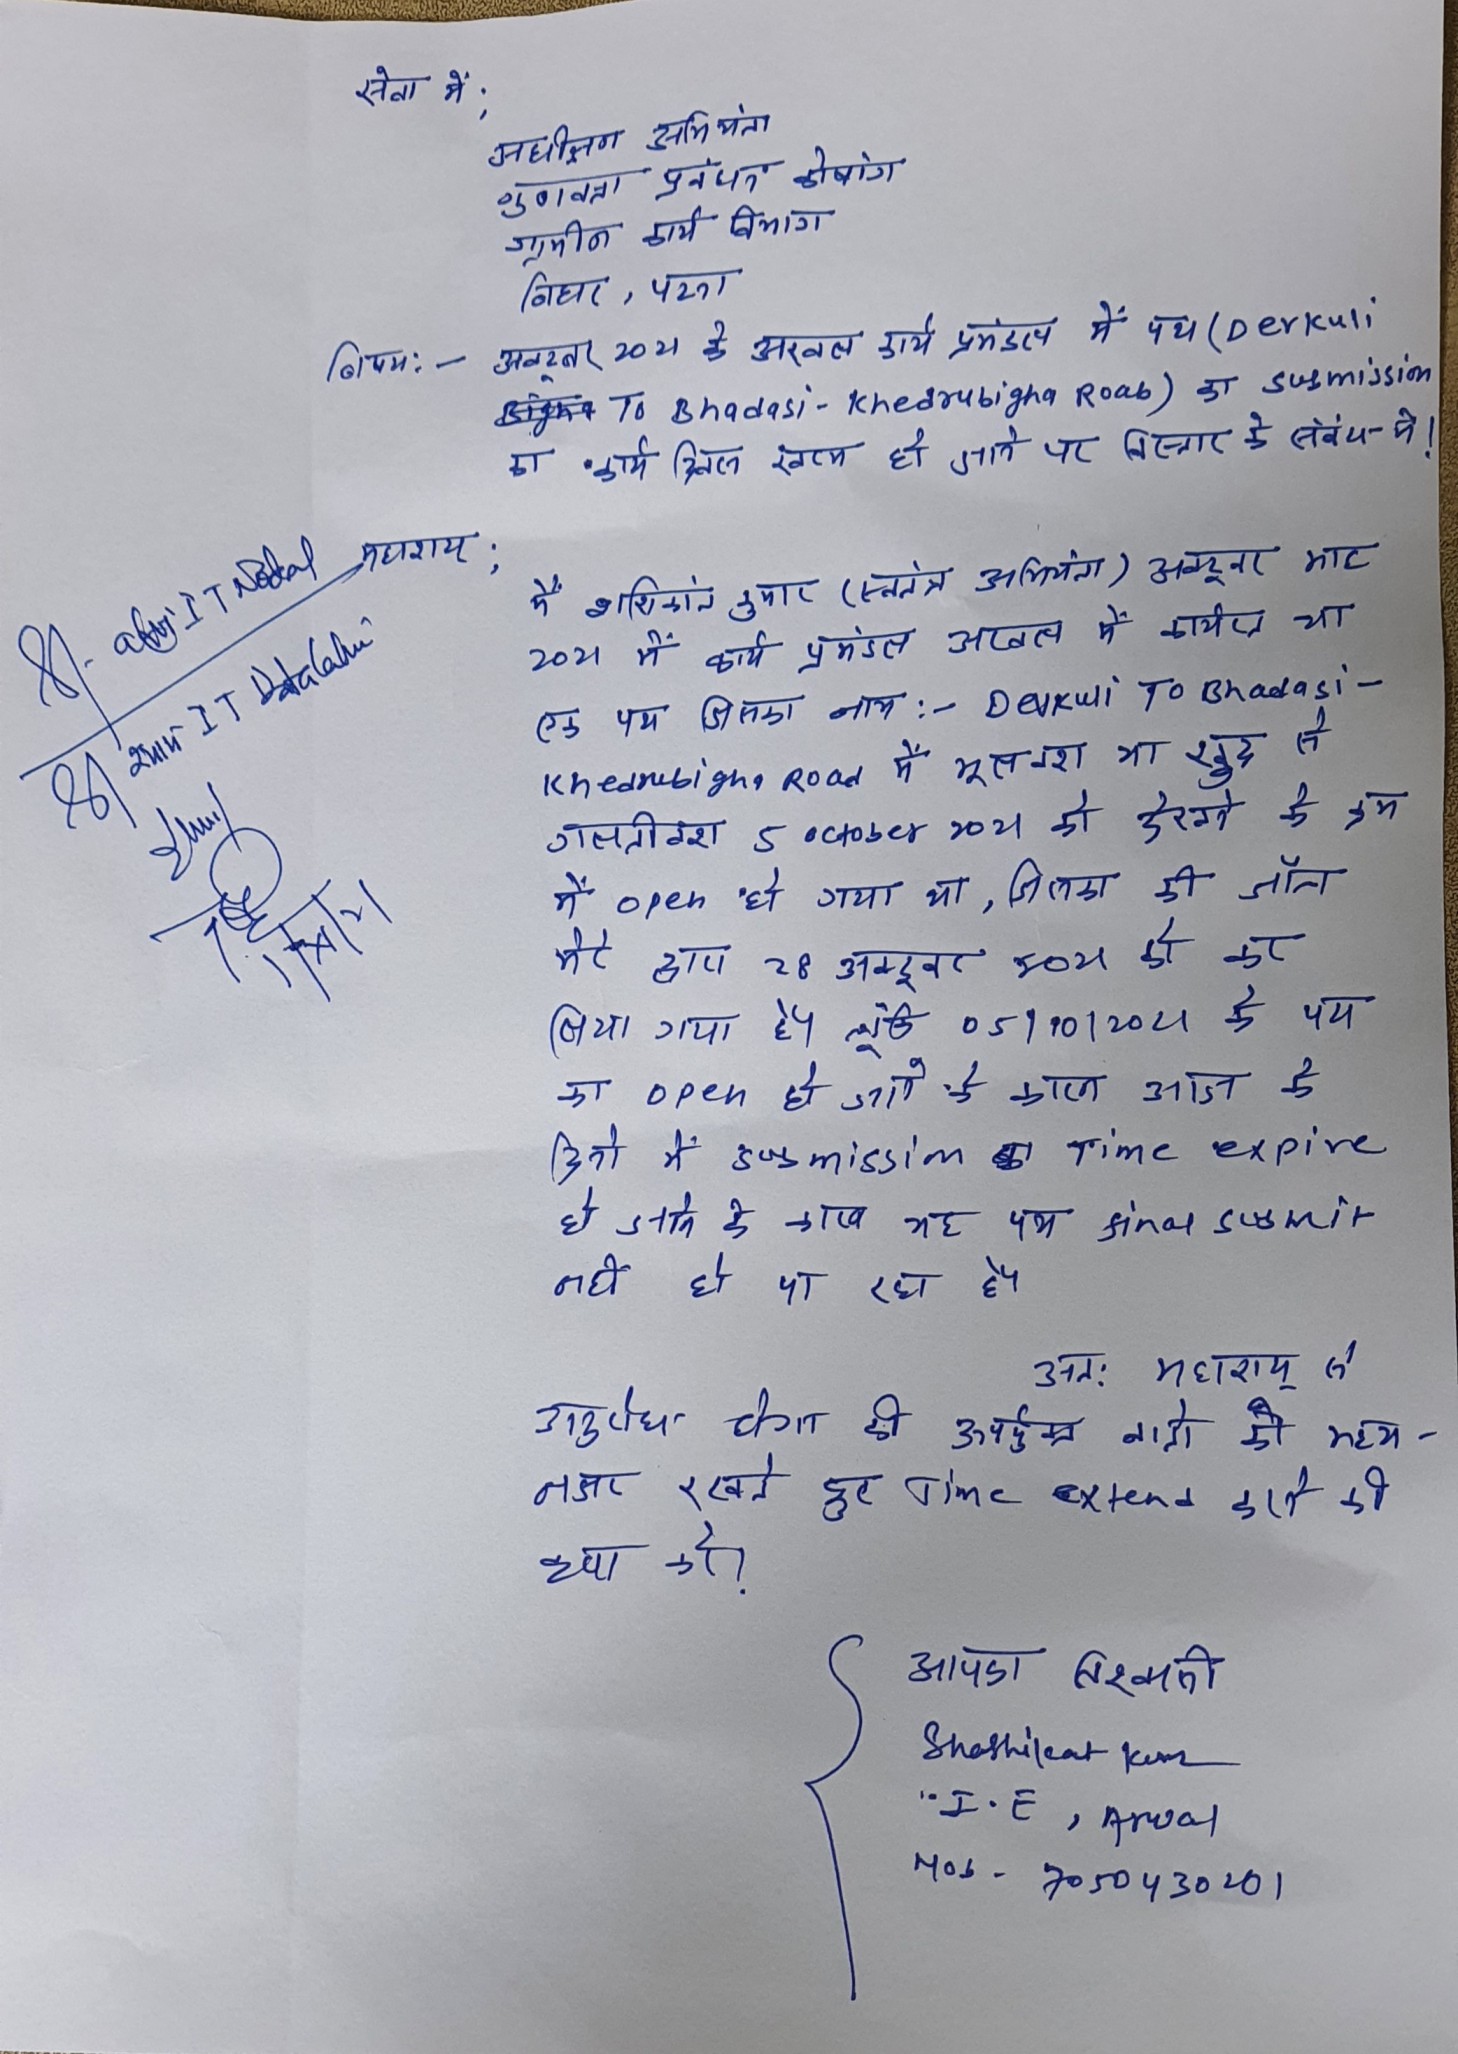 सेवा में,
अधीक्षण अभियंता
गुणवत्ता प्रबंधन कोषांग
ग्रामीण कार्य विभाग
बिहार, पटना
विषय:- अक्टूबर 2021 के अरवल कार्य प्रमंडल में पथ (Derkuli
To Bhadasi-Khedrubigha Road) का submission
का कार्य दिवस खत्म हो जाने पर विस्तार के संबंध में!
महाशय,
मैं शशिकांत कुमार (स्वतंत्र अभियंता) अक्टूबर माह
2021 में कार्य प्रमंडल अरवल में कार्यरत था
एक पथ जिसका नाम:- Devkuli To Bhadasi-
Khedrubigha Road में भूलवश या खुद से
गलतीवश 5 october 2021 को देखने के क्रम
में open हो गया था, जिसका की जाँच
मेरे द्वारा 28 अक्टूबर 2021 को कर
लिया गया है। चूंकि 05/10/2021 के पथ
का open हो जाने के कारण आज के
दिनो में submission का Time expire
हो जाने के कारण यह पथ final submit
नही हो पा रहा है।
अत: महाशय से
अनुरोध होगा की उपर्युक्त बातो को मद्दय-
नजर रखते हुए Time extend करने की
कृपा करे।
आपका विश्वासी
Shashikant Kumar
I.E, Arwal
Mob- 7050430201
IT Nodal
IT